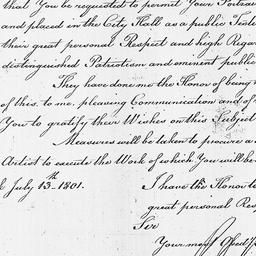 that You be requested to permit Your Portrait
and placed in the City Hall as a public Testi
their great personal Respect and high Regar
distinguished Patriotism and eminent public
They have done me the Honor of being
of this, to me, pleasing Communication and of
You to gratify their Wishes on this Subject
Measures will be taken to procure a
Artist to execute the Work of which You will be
July 13th 1801.
I have the Honor to
great personal Res
Sir
Your most Obed